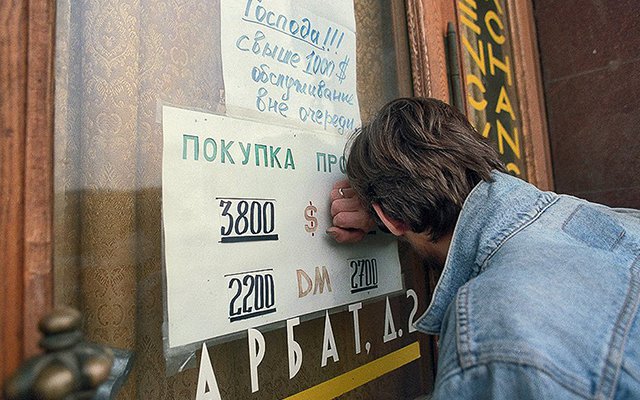 Господа!!!
свыше 1000 $
обслуживание
вне очереди
ПОКУПКА ПРО
3800 $
2200 DM 2700
АРБАТ, Д.2
EXCHANGE